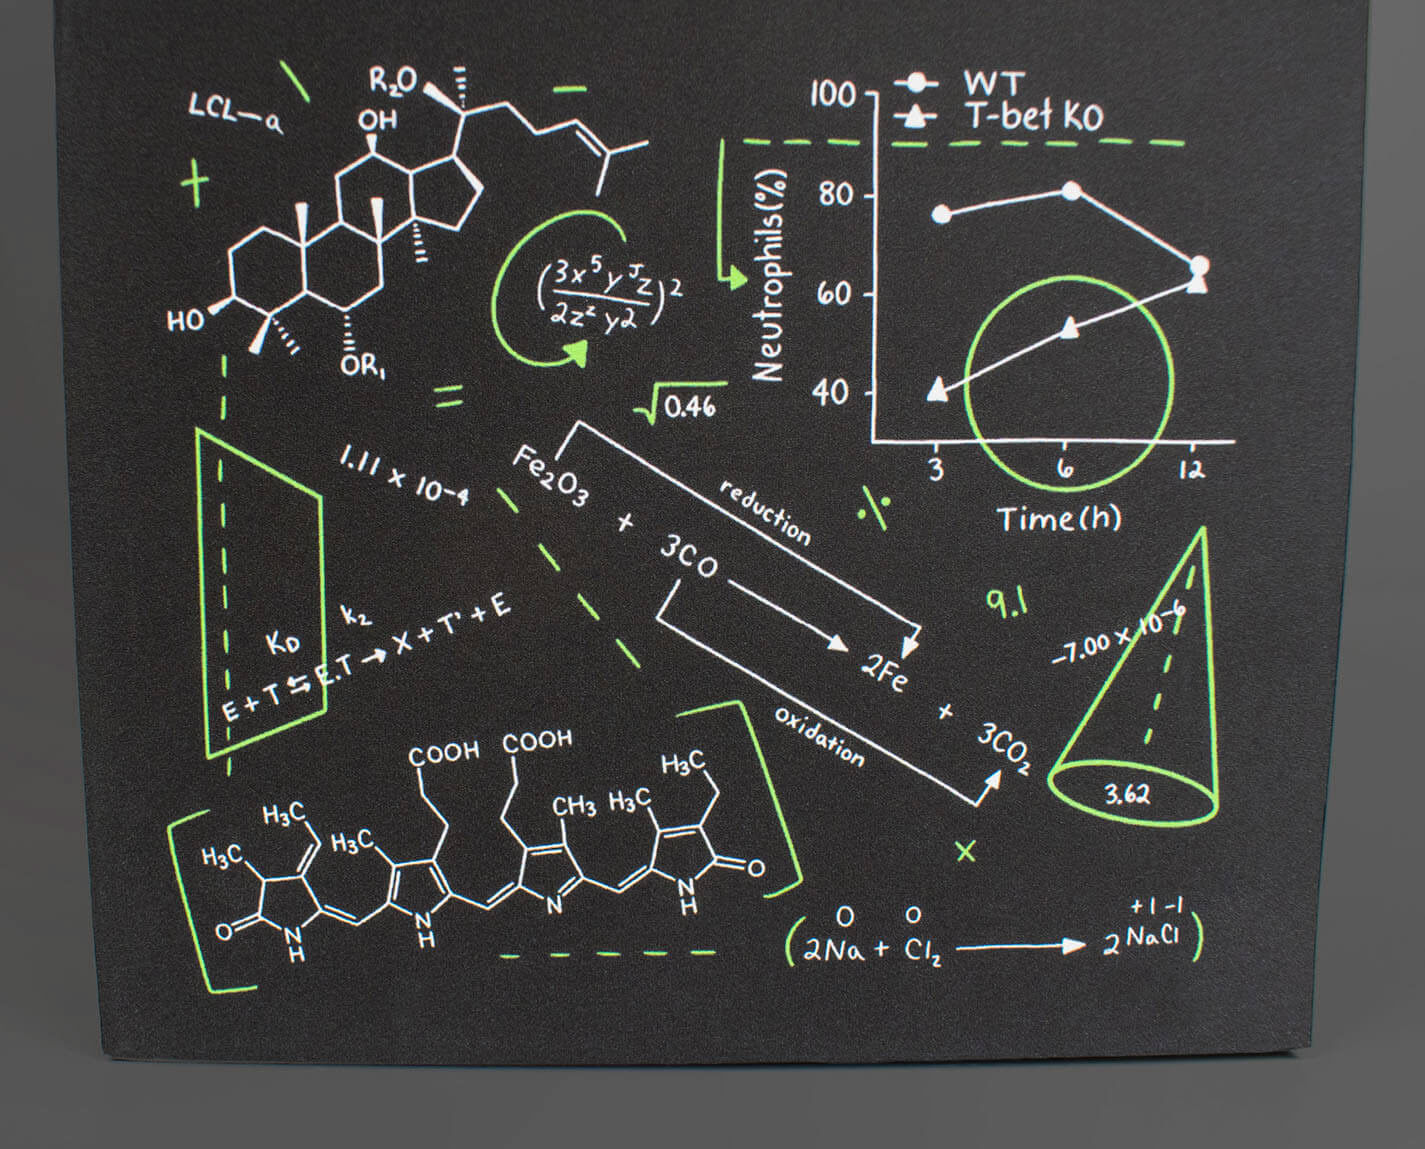 LCL-a
R₂O
OH
HO
OR₁
(3x⁵yᴶz / 2z²y²)²
=
√0.46
WT
T-bet KO
Neutrophils(%)
100
80
60
40
3 6 12
Time(h)
1.11 x 10-4
Fe₂O₃ + 3CO → 2Fe + 3CO₂
reduction
oxidation
9.1
-7.00 x 10-6
3.62
KD k₂
E + T ⇆ E.T → X + T' + E
COOH COOH
H₃C
H₃C
H₃C
CH₃ H₃C
H₃C
O
N
H
N
H
N
N
H
O
x
O O +1 -1
(2Na + Cl₂ → 2NaCl)